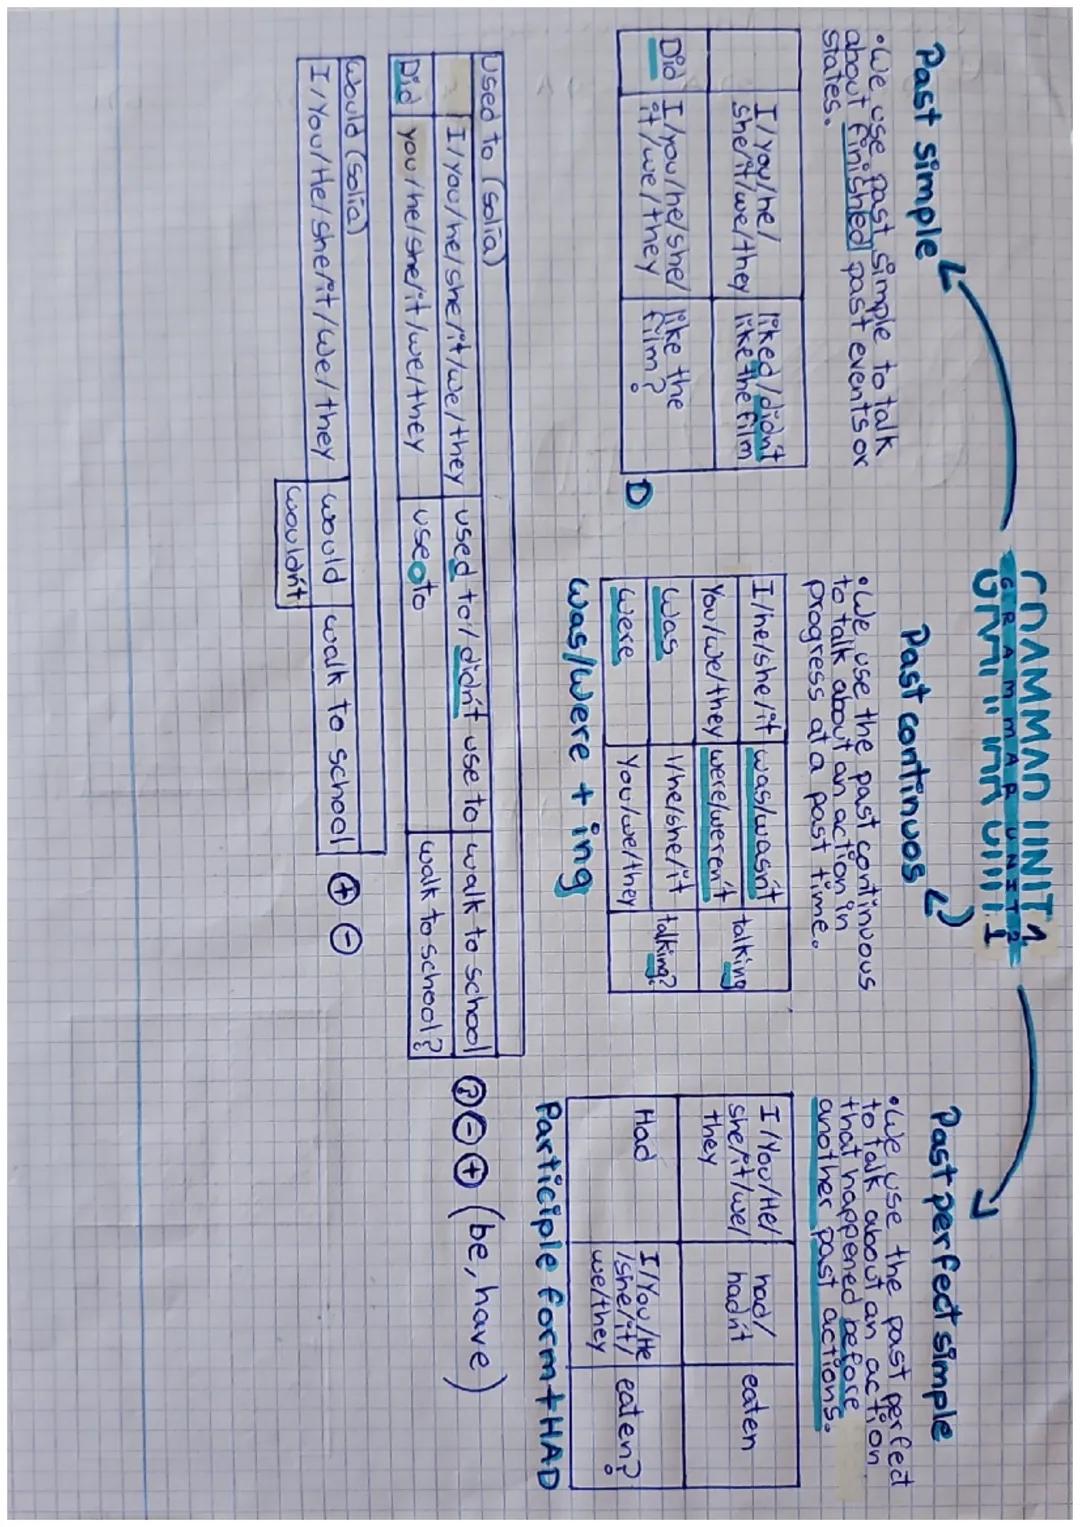 GRAMMAR UNIT 1
Past simple
•We use past simple to talk
about finished past events or
states.
I/you/he/
she/it/we/they
liked/didn't
like the film
Did
I/you/he/she/
it/we/they
like the
film?
D
Past continuos
•We use the past continuous
to talk about an action in
progress at a past time.
I/he/she/it
was/wasn't
talking
You/we/they
were/weren't
Was
I/he/she/it
talking?
Were
You/we/they
was/were + ing
Past perfect simple
•We use the past perfect
to talk about an action
that happened before
another past actions.
I/You/He/
she/it/we/
they
had/
hadn't
eaten
Had
I/You/He
/she/it/
we/they
eaten?
Participle form + HAD
Used to (solía)
I/you/he/she/it/we/they
used to/didn't use to
walk to school
Did
you/he/she/it/we/they
use to
walk to school?
? - + (be, have)
Would (solía)
I/You/He/She/it/we/they
would
walk to school
wouldn't
+ -